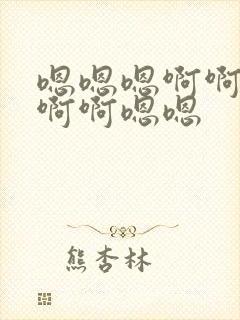 嗯嗯嗯啊啊
啊啊嗯嗯
熊杏林